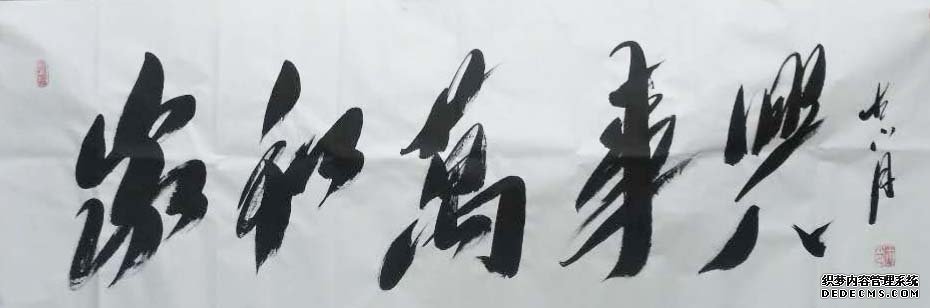 家和萬事興
织梦内容管理系统
DEDECMS.COM